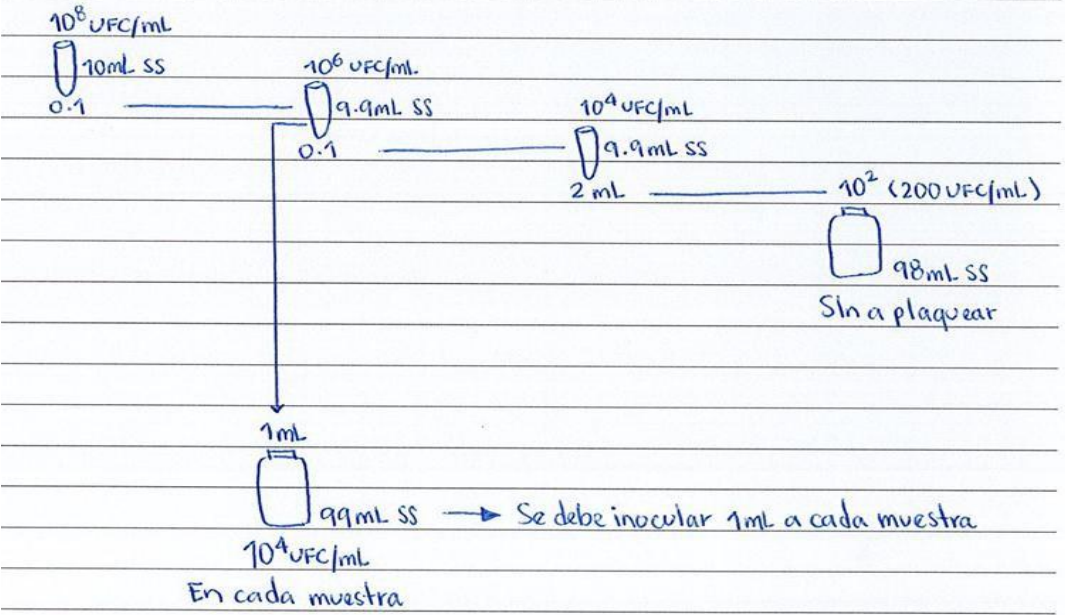 10⁸ UFC/mL
10mL SS
0.1
10⁶ UFC/mL.
9.9mL SS
0.1
10⁴ UFC/mL
9.9mL SS
2 mL
10² (200 UFC/mL)
98mL SS
Sln a plaquear
1mL
99mL SS → Se debe inocular 1mL a cada muestra
10⁴ UFC/mL
En cada muestra